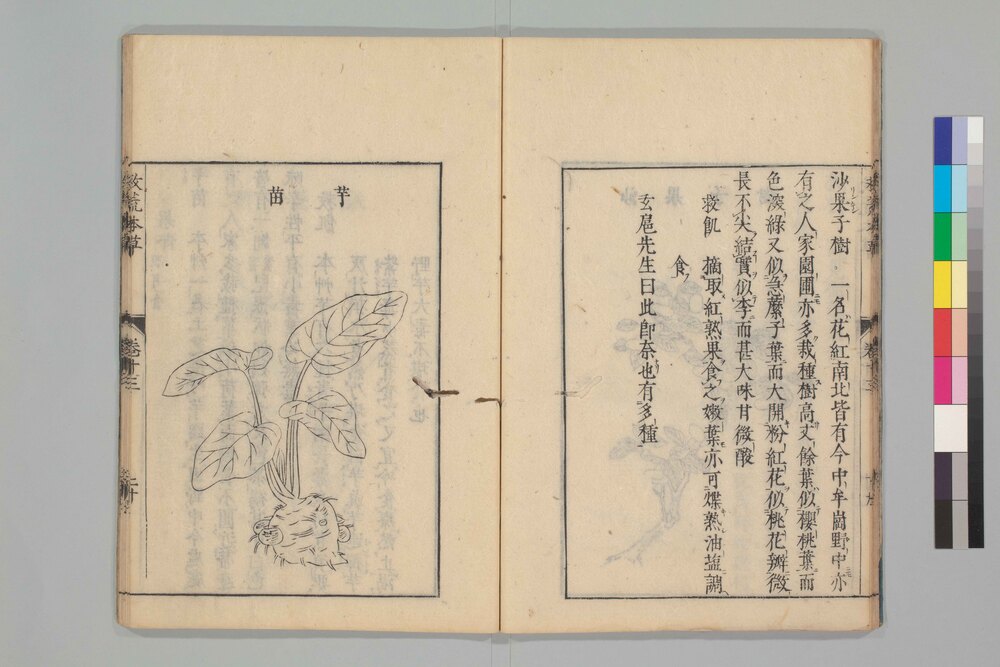 沙果子樹 一名花紅南北皆有今中牟崗野中亦
有之人家園圃亦多栽種樹高丈餘葉似櫻桃葉而
色深綠又似急蘪子葉而大開粉紅花似桃花瓣微
長不尖結實似李而甚大味甘微酸
救飢 摘取紅熟果食之嫩葉亦可煠熟油盐調
食
玄扈先生曰此即柰也有多種
芋
苗
救荒本草
卷十三
二十